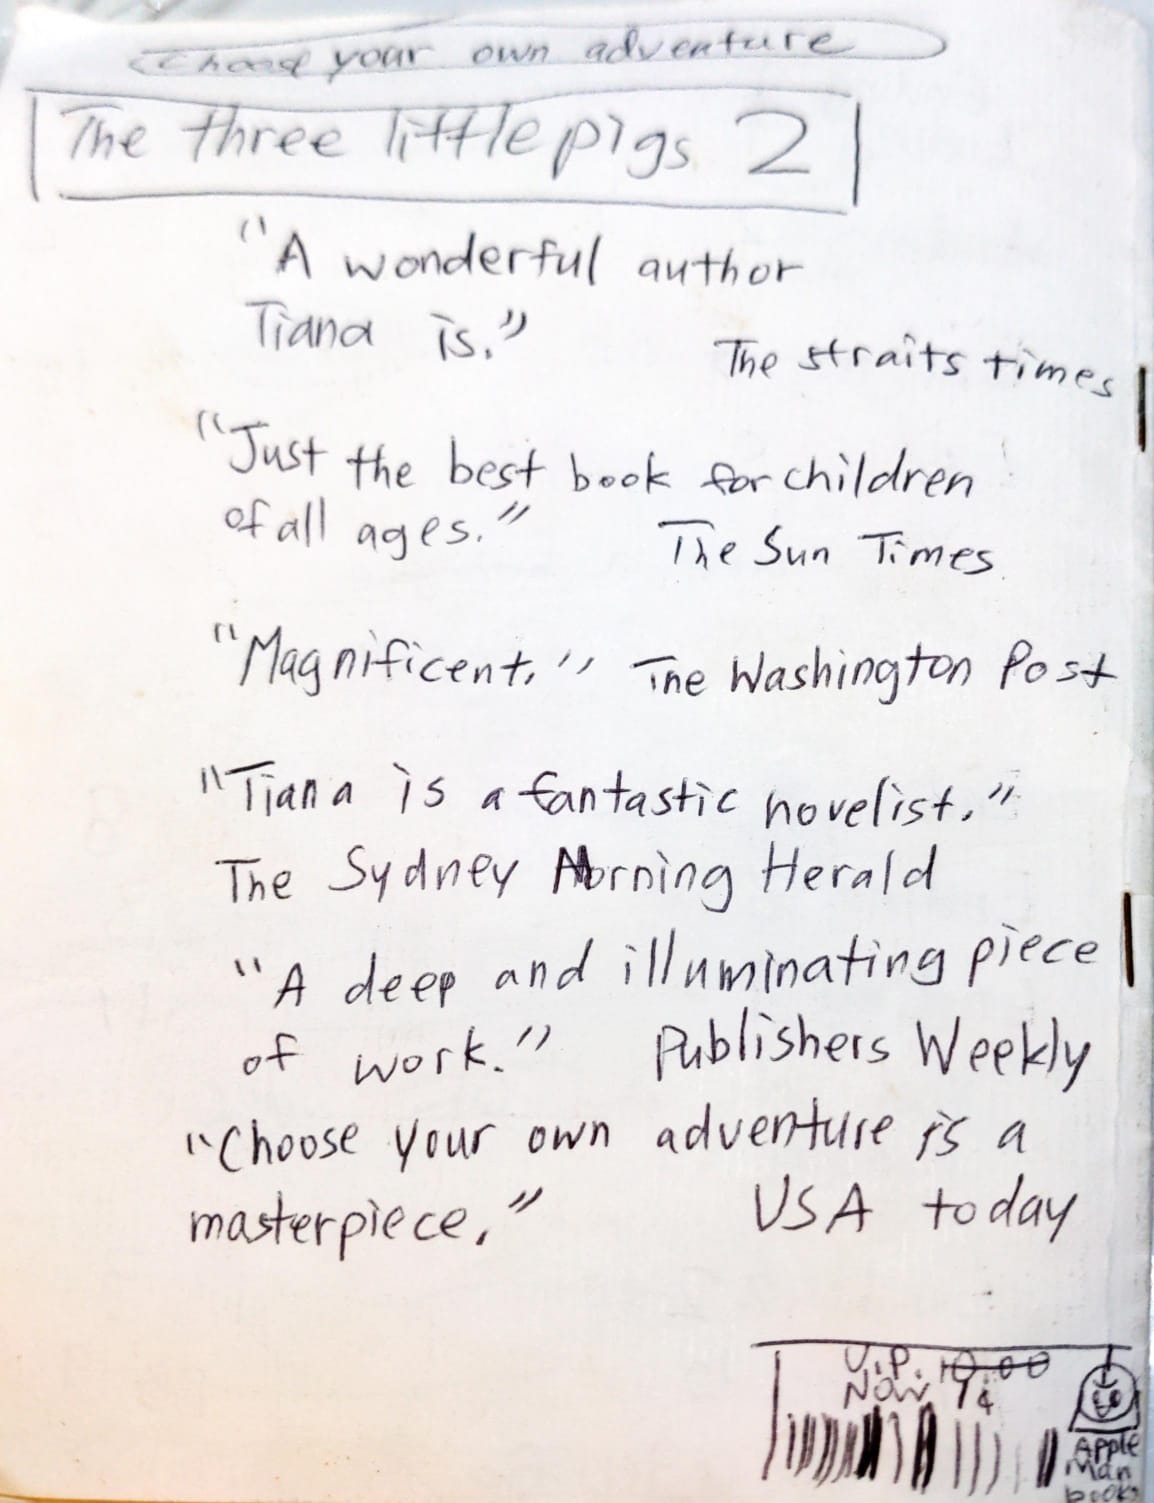 Choose your own adventure
The three little pigs 2
"A wonderful author
Tiana is."
The straits times
"Just the best book for children
of all ages."
The Sun Times
"Magnificent." The Washington Post
"Tiana is a fantastic novelist."
The Sydney Morning Herald
"A deep and illuminating piece
of work." Publishers Weekly
"Choose your own adventure is a
masterpiece." USA today
U.P. 10.00
NOW 1¢
Apple
Man
books